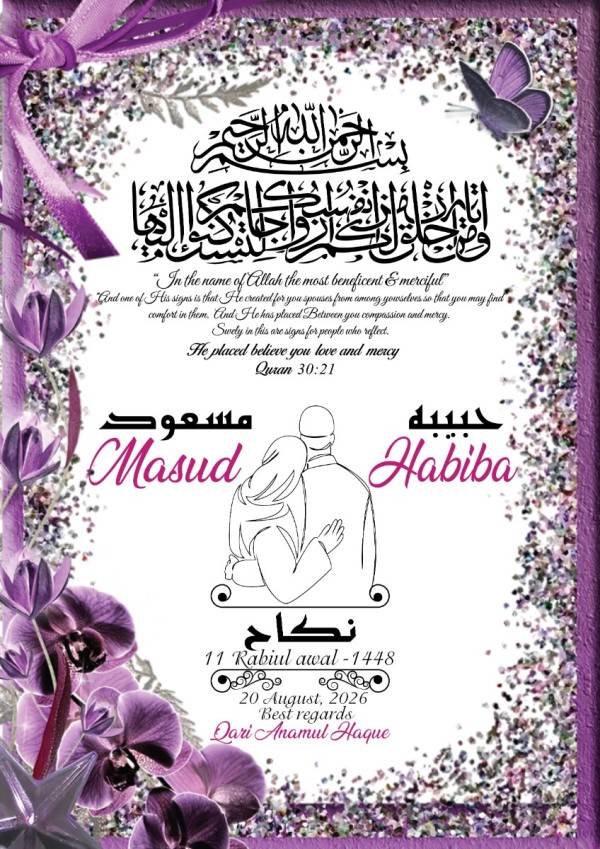 بسم الله الرحمن الرحيم
ومن آياته أن خلق لكم من أنفسكم أزواجا لتسكنوا إليها
“In the name of Allah the most beneficent & merciful”
"And one of His signs is that He created for you spouses from among yourselves so that you may find
comfort in them. And He has placed Between you compassion and mercy.
Surely in this are signs for people who reflect.
He placed believe you love and mercy
Quran 30:21
مسعود حبيبه
Masud Habiba
نكاح
11 Rabiul awal -1448
20 August, 2026
Best regards
Qari Anamul Haque